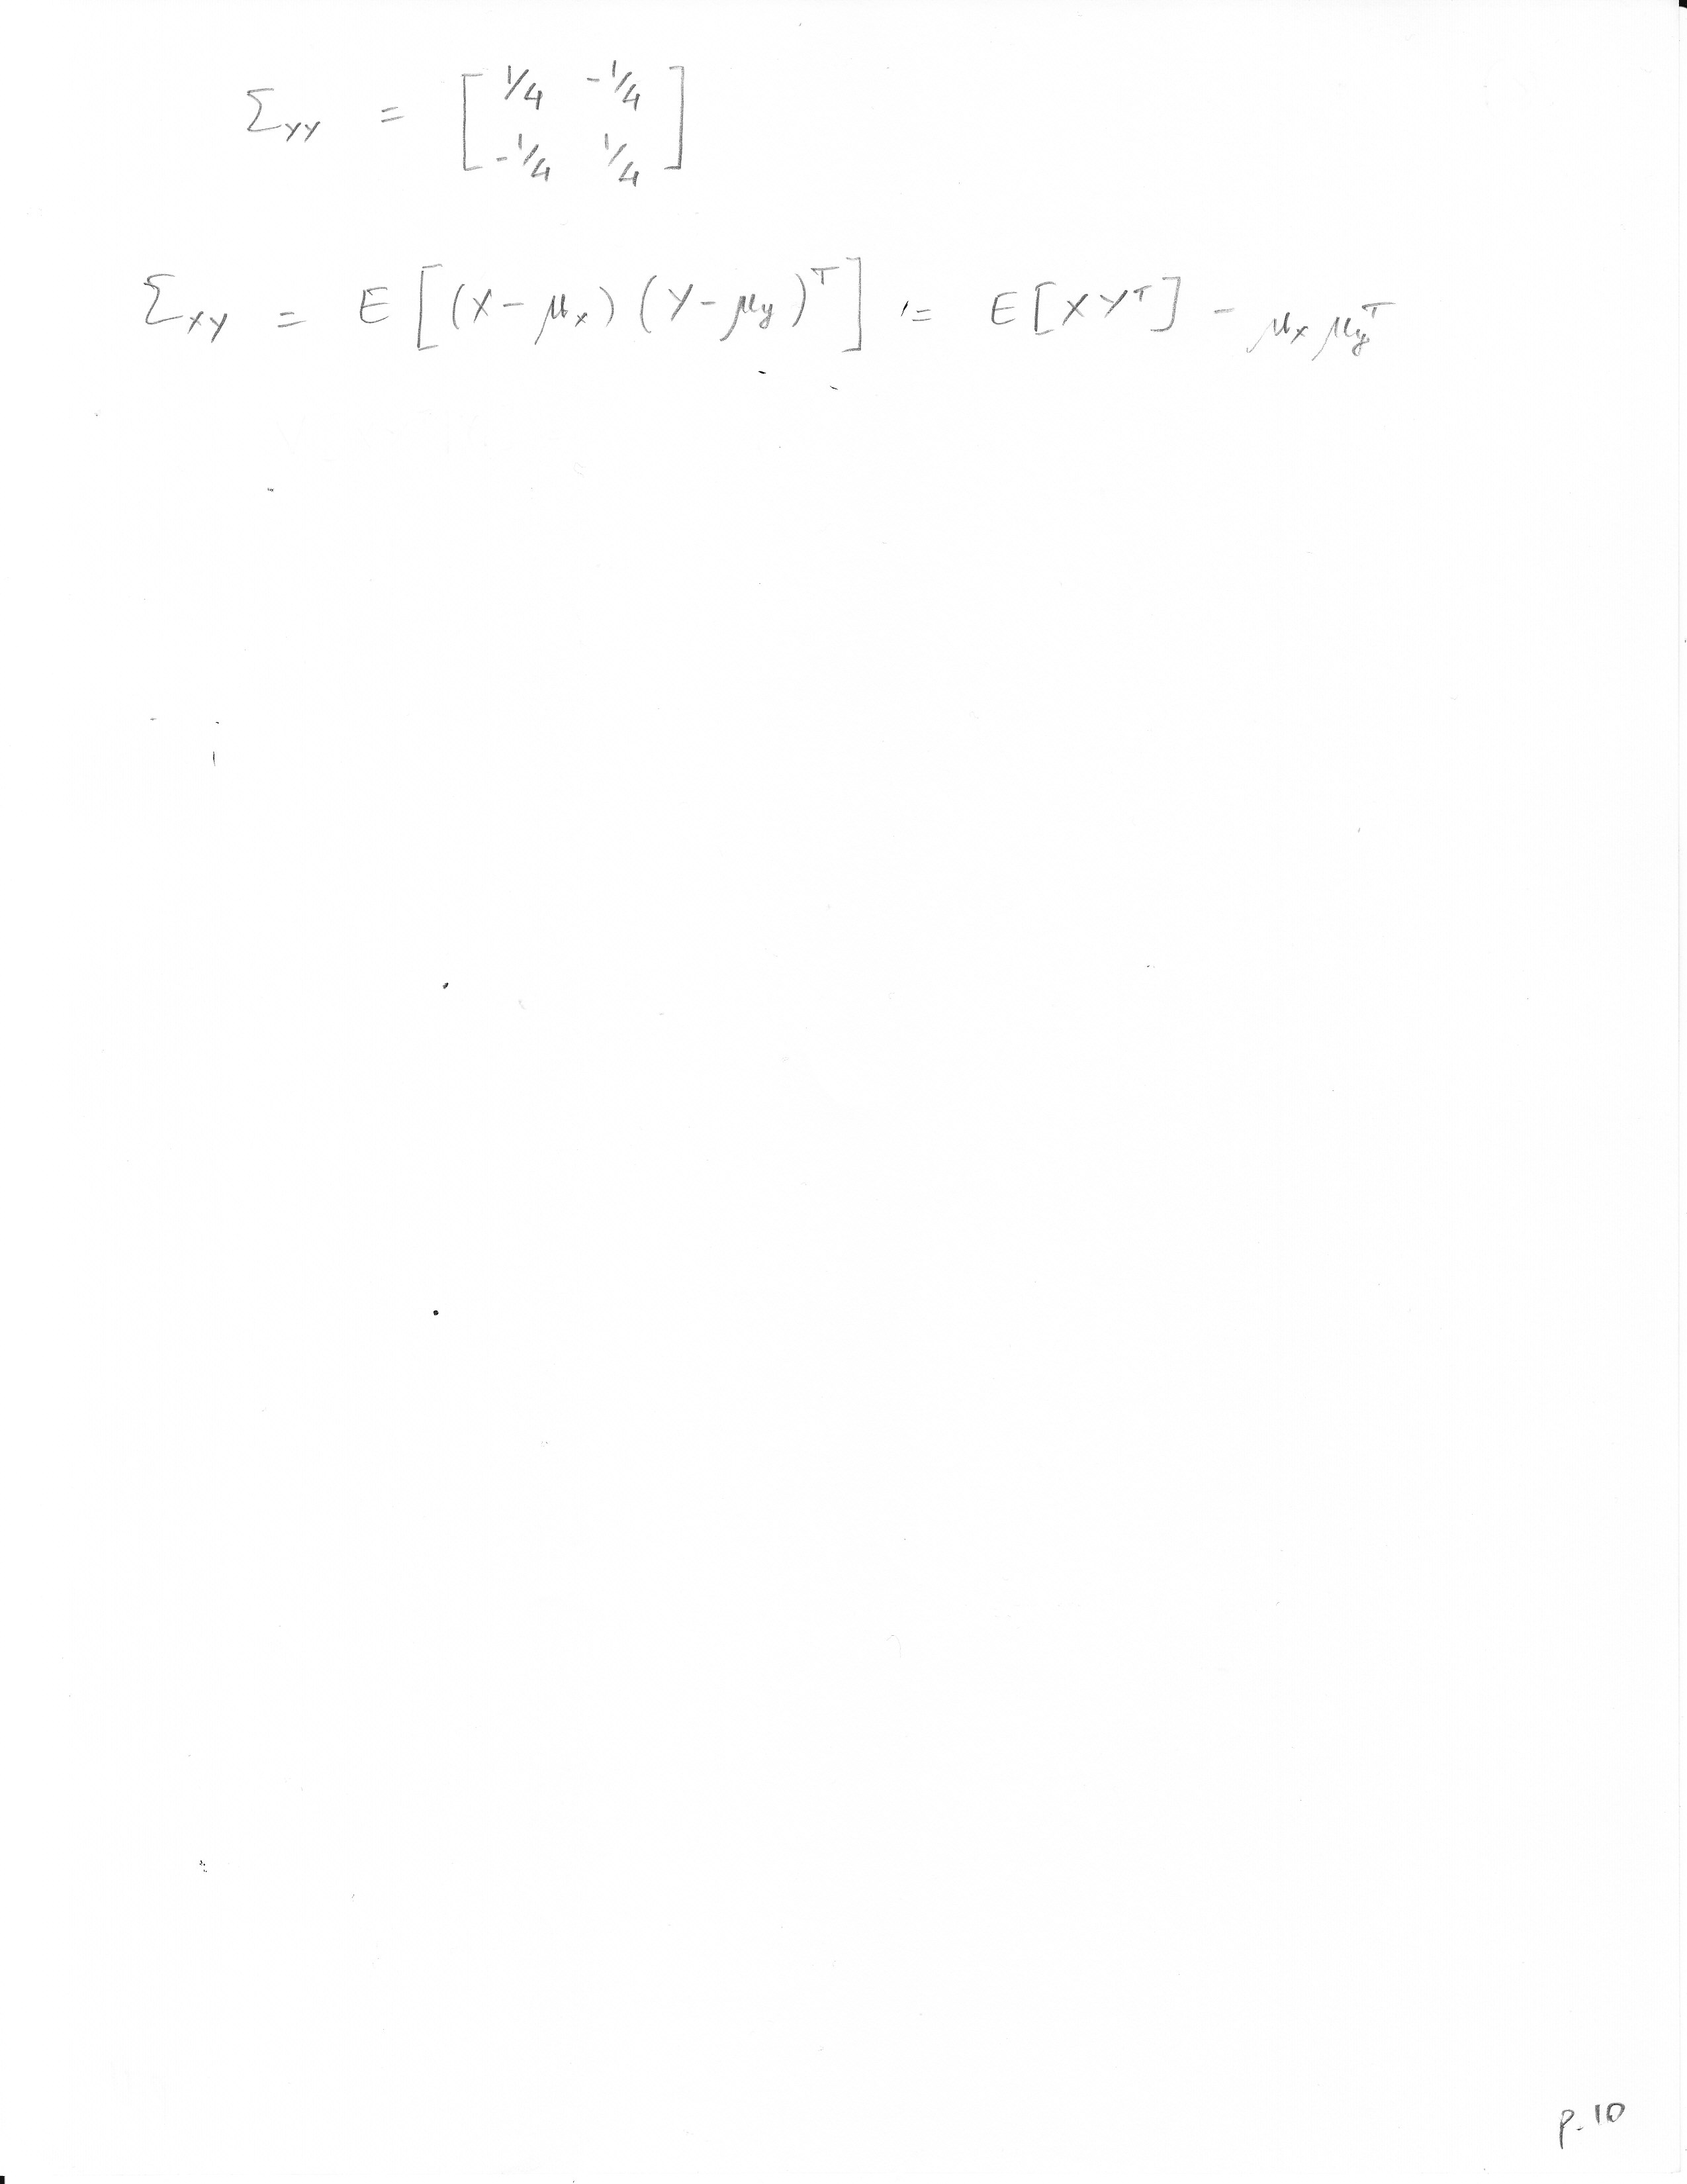 Σ_YY = [ 1/4 -1/4 ; -1/4 1/4 ]
Σ_XY = E[(X-μ_x)(Y-μ_y)^T] = E[XY^T] - μ_x μ_y^T
p.10